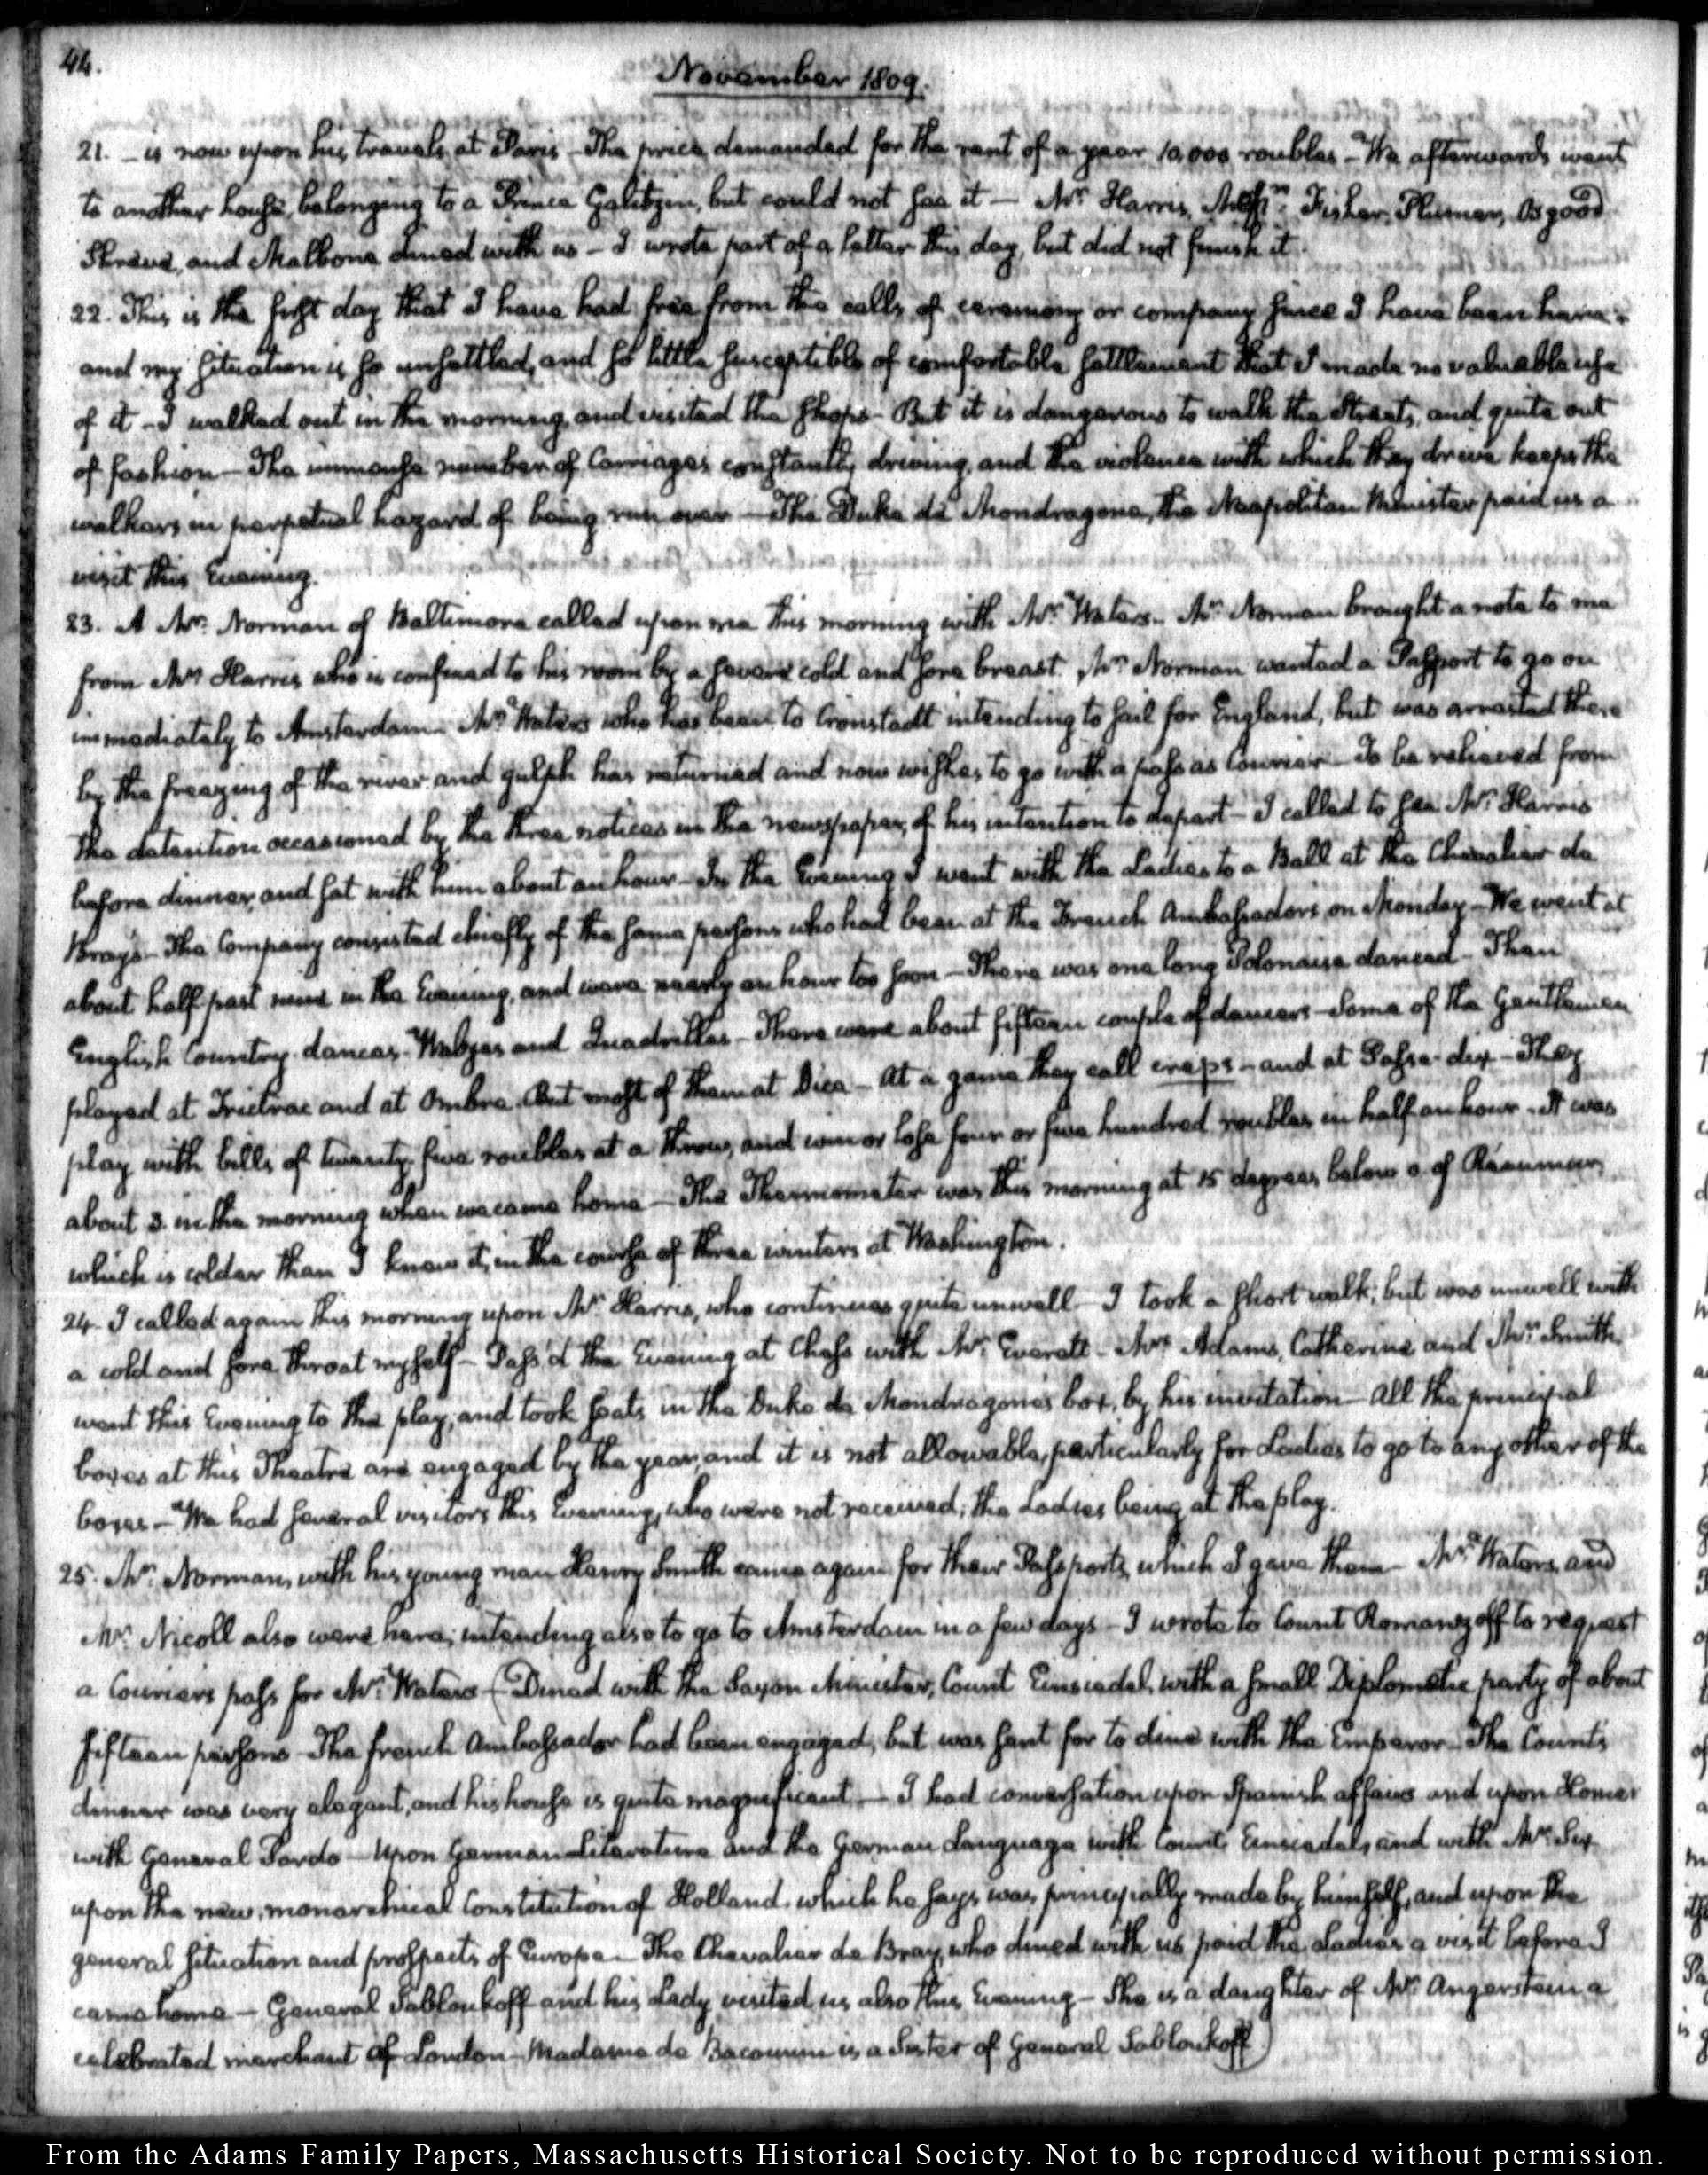 44.
November 1809.
21. — is now upon his travels at Paris — The price demanded for the rent of a year 10,000 roubles — We afterwards went
to another house, belonging to a Prince Galitzin, but could not see it — Mr. Harris, Fisher, Plumer, Osgood
Shreve, and Malbone dined with us — I wrote part of a letter this day, but did not finish it.
22. This is the first day that I have had free from the calls of ceremony or company since I have been here:
and my situation is so unsettled, and so little susceptible of comfortable settlement that I made no valuable use
of it — I walked out in the morning, and visited the shops — But it is dangerous to walk the Streets, and quite out
of fashion — The immense number of Carriages constantly driving, and the violence with which they drive keeps the
walkers in perpetual hazard of being run over — The Duke de Mondragone, the Neapolitan Minister paid us a
visit this Evening.
23. A Mr. Norman of Baltimore called upon me this morning with Mr. Waters — Mr. Norman brought a note to me
from Mr. Harris who is confined to his room by a severe cold and sore breast. Mr. Norman wanted a Passport to go on
immediately to Amsterdam — Mr. Waters who has been to Cronstadt intending to sail for England, but was arrested there
by the freezing of the river and gulph has returned and now wishes to go with a pass as Courier — To be relieved from
the detention occasioned by the three notices in the newspaper, of his intention to depart — I called to see Mr. Harris
before dinner, and sat with him about an hour — In the Evening I went with the Ladies to a Ball at the Chevalier de
Bray's — The Company consisted chiefly of the same persons who had been at the French Ambassador's on Monday — We went at
about half past nine in the Evening, and were nearly an hour too soon — There was one long Polonaise danced — Then
English Country-dances — Walzes and Quadrilles — There were about fifteen couple of dancers — Some of the Gentlemen
played at Trictrac and at Ombre. But most of them at Dice — At a game they call craps — and at Passe-dix — They
play with bills of twenty-five roubles at a throw, and win or lose four or five hundred roubles in half an hour — It was
about 3. in the morning when we came home — The Thermometer was this morning at 15 degrees below 0 of Réaumur,
which is colder than I knew it, in the course of three winters at Washington.
24. I called again this morning upon Mr. Harris, who continues quite unwell — I took a short walk; but was unwell with
a cold and sore throat myself — Pass'd the Evening at Chess with Mr. Everett — Mrs. Adams, Catherine and Mr. Smith
went this Evening to the play, and took seats in the Duke de Mondragone's box, by his invitation — All the principal
boxes at this Theatre are engaged by the year, and it is not allowable, particularly for Ladies to go to any other of the
boxes — We had several visitors this Evening, who were not received; the Ladies being at the play.
25. Mr. Norman, with his young man Henry Smith came again for their Passports, which I gave them — Mr. Waters and
Mr. Nicoll also were here; intending also to go to Amsterdam in a few days — I wrote to Count Romanzoff to request
a Courier's pass for Mr. Waters — (Dined with the Saxon Minister, Count Einsiedel, with a small Diplomatic party of about
fifteen persons — The french Ambassador had been engaged, but was sent for to dine with the Emperor — The Count's
dinner was very elegant, and his house is quite magnificent — I had conversation upon Spanish affairs and upon Homer
with General Pardo — Upon German Literature and the German Language with Count Einsiedel, and with Mr. Six
upon the new, monarchical Constitution of Holland, which he says was principally made by himself, and upon the
general situation and prospects of Europe — The Chevalier de Bray, who dined with us paid the Ladies a visit before I
came home — General Sabloukoff and his Lady visited us also this Evening — She is a daughter of Mr. Angerstein a
celebrated merchant of London — Madame de Bacounin is a Sister of General Sabloukoff)
From the Adams Family Papers, Massachusetts Historical Society. Not to be reproduced without permission.